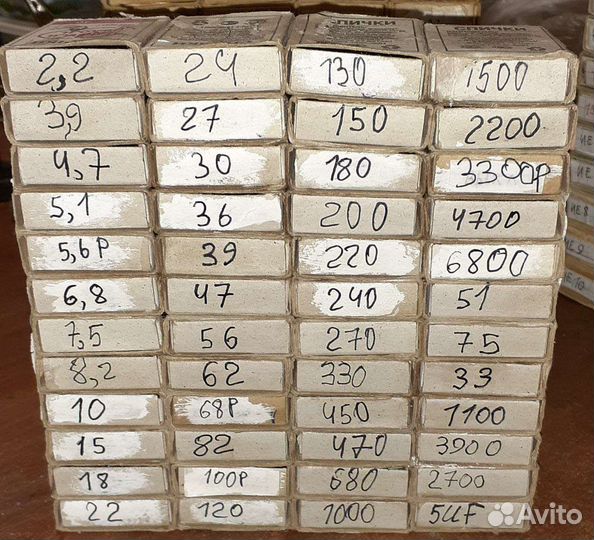 СПИЧКИ СПИЧКИ
2,2 24 130 1500
3,9 27 150 2200
4,7 30 180 3300P
5,1 36 200 4700
5,6P 39 220 6800
6,8 47 240 51
7,5 56 270 75
8,2 62 330 33
10 68P 450 1100
15 82 470 3900
18 100P 680 2700
22 120 1000 5UF
ИЕ 8
ИЕ 9
ИЕ 10
Avito